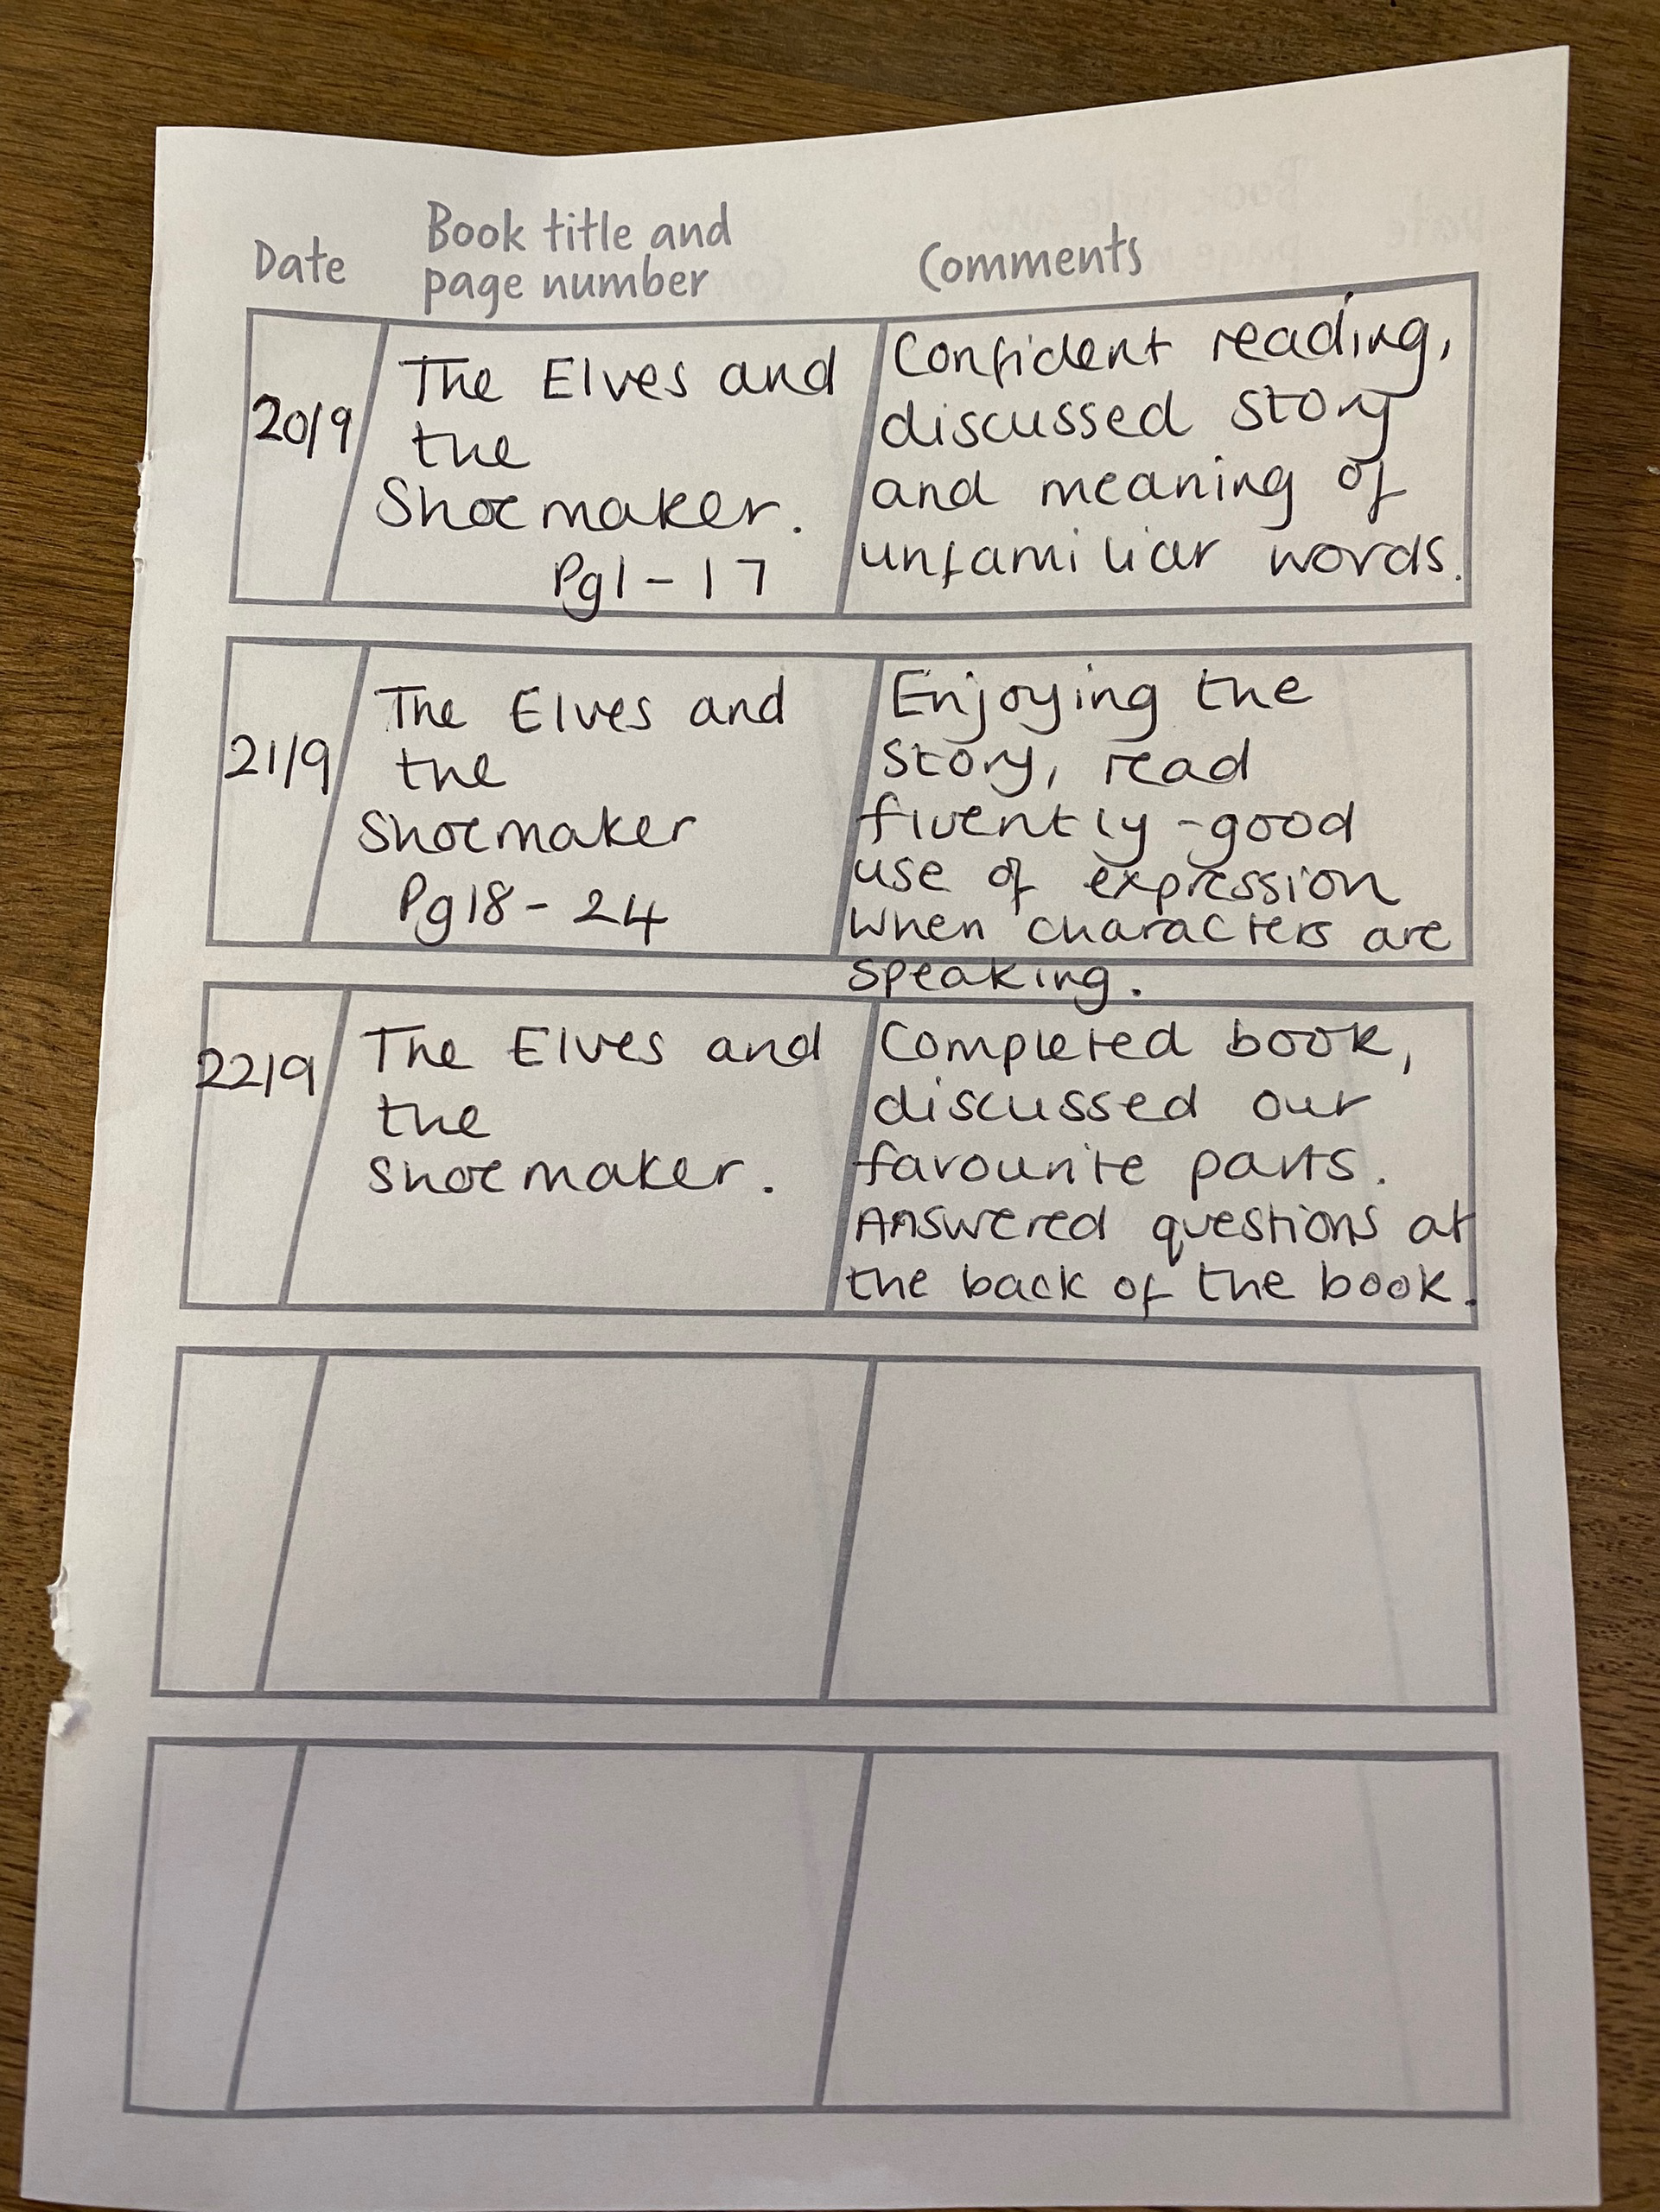 Date
Book title and
page number
Comments
20/9
The Elves and
the
Shoemaker.
Pg1-17
Confident reading,
discussed story
and meaning of
unfamiliar words.
21/9
The Elves and
the
Shoemaker
Pg18-24
Enjoying the
story, read
fluently - good
use of expression
when characters are
speaking.
22/9
The Elves and
the
Shoemaker.
Completed book,
discussed our
favourite parts.
Answered questions at
the back of the book.